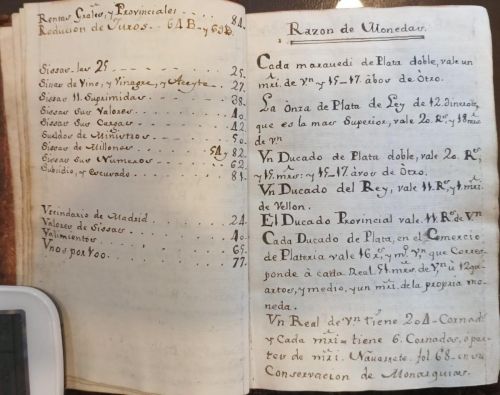 Rentas Grales, y Provinciales . . . 84.
Reducion de Juros. . 64 B. y 69 B.
Sissas las 25 . . . 25.
Sisas de Vino, y Vinagre, y Azeyte . . 27.
Sissas 11. Suprimidas . . . 38.
Sissas sus Valores . . . 40.
Sissas sus Cargas . . . 42.
Sueldos de Ministros . . . 50.
Sissas de Millones . . . 54 y 82.
Sissas sus Numeros . . . 62.
Subsidio, y escusado . . . 81.
Vecindario de Madrid . . . 24.
Valores de Sissas . . . 40.
Valimientos . . . 65.
Vnos por 100. . . . 77.
Razon de Monedas.
Cada maravedi de Plata doble, vale un
mri. de vn y 15-17. abos de otro.
La Onza de Plata de Ley de 12. dineros,
que es la mas Superior, vale 20. Rs. y
de vn
Vn Ducado de Plata doble, vale 20. Rs.
y 15. mrs: y 15-17. avos de otro.
Vn Ducado del Rey, vale 11. Rs. y 1. mri.
de Vellon.
El Ducado Provincial vale 11. Rs. de Vn
Cada Ducado de Plata, en el Comercio
de Plateria vale 16 rs, y mo. vn que Corres-
ponde à cada Real 51. mrs. de vn, ù 12 qu-
artos, y medio, y un mri. de la propia mo-
neda.
Vn Real de vn tiene 204 - Cornads
y Cada mri = tiene 6. Cornados, o par-
tes de mri. Navarrete. fol. 68 - en su
Conservacion de Monarquias.